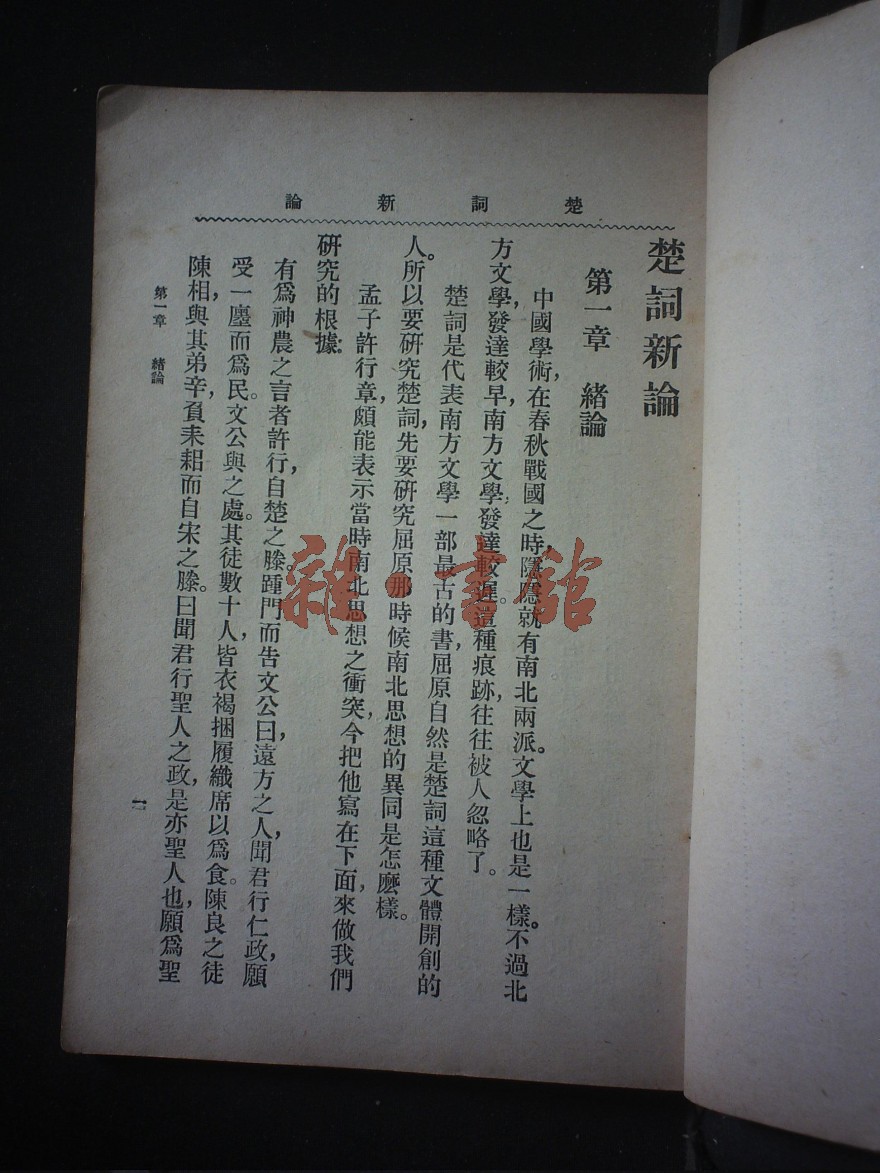 楚詞新論
楚詞新論
第一章　緒論
中國學術，在春秋戰國之時，隱隱就有南北兩派。文學上也是一樣。不過北
方文學，發達較早，南方文學，發達較遲。這種痕跡，往往被人忽略了。
楚詞是代表南方文學一部最古的書，屈原自然是楚詞這種文體開創的
人。所以要研究楚詞，先要研究屈原那時候南北思想的異同是怎麽樣。
孟子許行章，頗能表示當時南北思想之衝突，今把他寫在下面，來做我們
研究的根據：
有爲神農之言者許行，自楚之滕。踵門而告文公曰，遠方之人，聞君行仁政，願
受一廛而爲民。文公與之處。其徒數十人，皆衣褐捆履織席以爲食。陳良之徒
陳相與其弟辛，負耒耜而自宋之滕。曰聞君行聖人之政，是亦聖人也，願爲聖
第一章　緒論
一
雜·書館